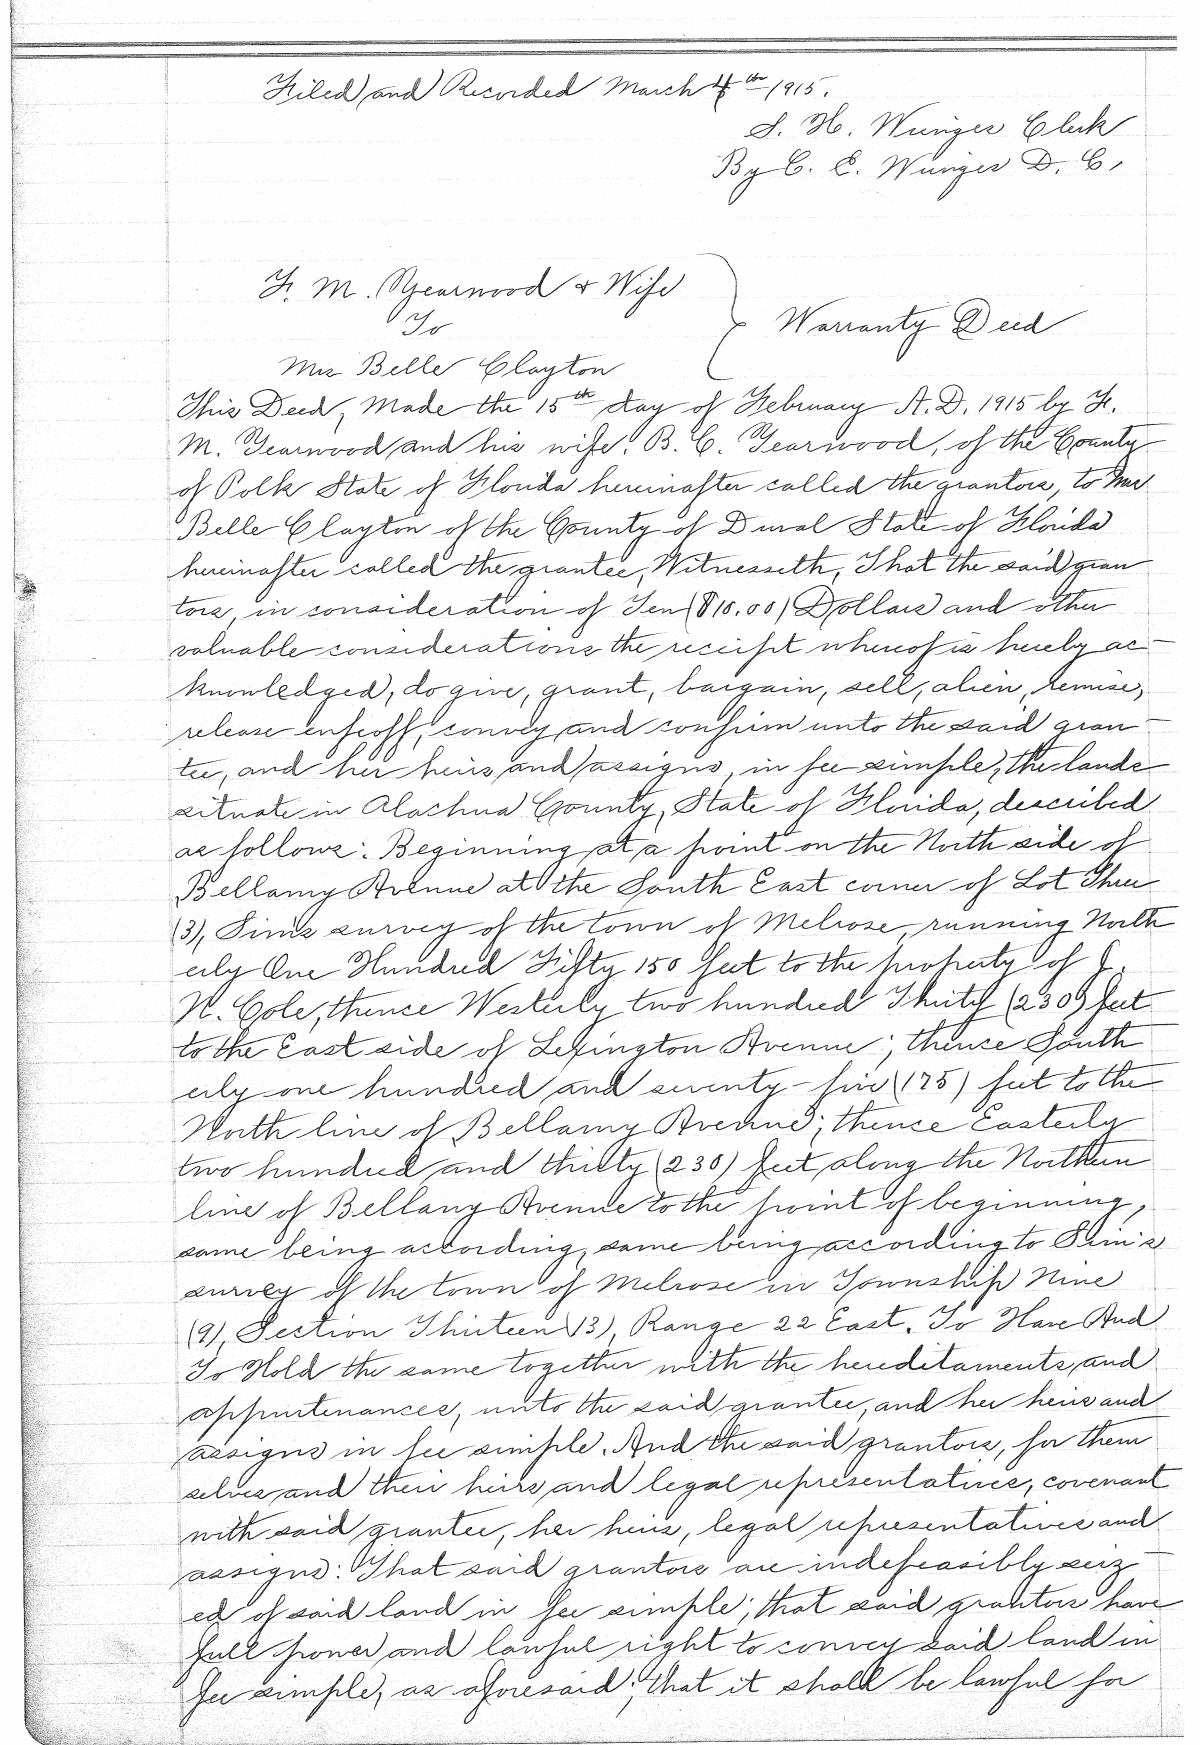 Filed and Recorded March 4th 1915.
S. H. Wienges Clerk
By C. E. Wienges D. C.
F. M. Yearwood & Wife
To
Warranty Deed
Mrs Belle Clayton
This Deed, Made the 15th day of February A. D. 1915 by F.
M. Yearwood and his wife, B. C. Yearwood, of the County
of Polk State of Florida hereinafter called the grantors, to Mrs
Belle Clayton of the County of Duval State of Florida
hereinafter called the grantee, Witnesseth, That the said gran
tors, in consideration of Ten ($10.00) Dollars and other
valuable considerations the receipt whereof is hereby ac-
knowledged, do give, grant, bargain, sell, alien, remise,
release enfeoff, convey and confirm unto the said gran-
tee, and her heirs and assigns, in fee simple, the lands
situate in Alachua County, State of Florida, described
as follows: Beginning at a point on the North side of
Bellamy Avenue at the South East corner of Lot Three
(3), Sim's survey of the town of Melrose, running North
erly One Hundred Fifty 150 feet to the property of J.
N. Cole, thence Westerly two hundred Thirty (230) feet
to the East side of Lexington Avenue; thence South
erly one hundred and seventy-five (175) feet to the
North line of Bellamy Avenue; thence Easterly
two hundred and thirty (230) feet along the Northern
line of Bellamy Avenue to the point of beginning,
same being according, same being according to Sim's
survey of the town of Melrose in Township Nine
(9), Section Thirteen (13), Range 22 East. To Have And
To Hold the same together with the hereditaments and
appurtenances, unto the said grantee, and her heirs and
assigns in fee simple. And the said grantors, for them
selves and their heirs and legal representatives, covenant
with said grantee, her heirs, legal representatives and
assigns: That said grantors are indefeasibly seiz-
ed of said land in fee simple; that said grantors have
full power and lawful right to convey said land in
fee simple, as aforesaid; that it shall be lawful for